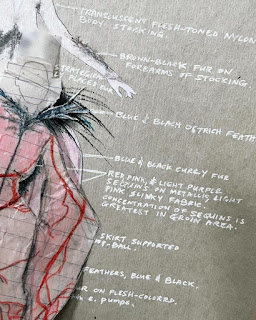 TRANSLUSCENT FLESH-TONED NYLON
BODY STOCKING.
BROWN-BLACK FUR ON
FOREARMS OF STOCKING.
STRATEGICALLY
PLACED FUR
BLUE & BLACK OSTRICH FEATH
BLUE & BLACK CURLY FUR
RED, PINK, & LIGHT PURPLE
SEQUINS ON METALLIC LIGHT
PINK SLINKY FABRIC.
CONCENTRATION OF SEQUINS IS
GREATEST IN GROIN AREA.
SKIRT SUPPORTED
FEATHERS, BLUE & BLACK.
UR ON FLESH-COLORED.
PUMPS.